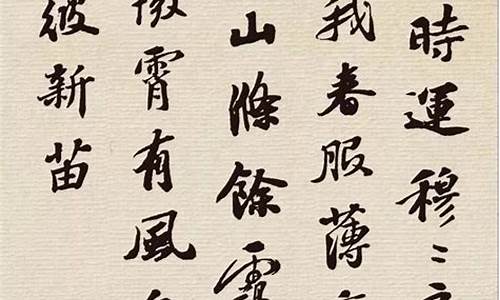 時運穆〻
我春服薄
山滌餘靄
微霄有風
彼新苗